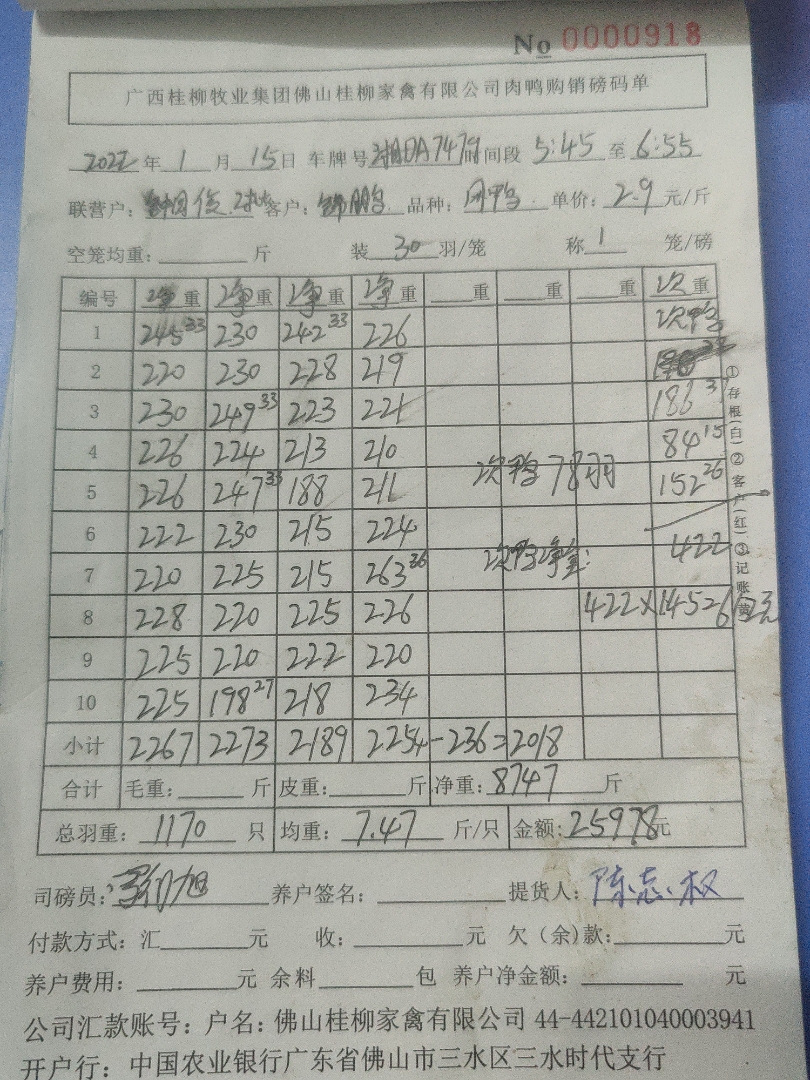 No 0000918
广西桂柳牧业集团佛山桂柳家禽有限公司肉鸭购销磅码单
2022年 1 月 15日 车牌号 湘DA7479 时间段 5:45 至 6:55
联营户: 客户: 鹏 品种: 鸭 单价: 2.9 元/斤
空笼均重: 斤 装 30 羽/笼 称 1 笼/磅
编号 净重 净重 净重 净重 重 重 重 次重
1 245 33 230 242 33 226 次鸭
2 220 230 228 219
3 230 249 33 223 221 186
4 226 224 213 210 84 15
次鸭78羽
5 226 247 33 188 211 152 26
6 222 230 215 224 422
次鸭净重:
7 220 225 215 263 36
8 228 220 225 226 422×1.45=
9 225 220 222 220
10 225 198 27 218 234
小计 2267 2273 2189 2254-236=2018
合计 毛重: 斤 皮重: 斤 净重: 8747 斤
总羽重: 1170 只 均重: 7.47 斤/只 金额: 25978元
司磅员: 旭 养户签名: 提货人: 陈志权
付款方式: 汇 元 收: 元 欠(余)款: 元
养户费用: 元 余料 包 养户净金额: 元
公司汇款账号: 户名: 佛山桂柳家禽有限公司 44-442101040003941
开户行: 中国农业银行广东省佛山市三水区三水时代支行
①存根(白)②客户(红)③记账(黄)